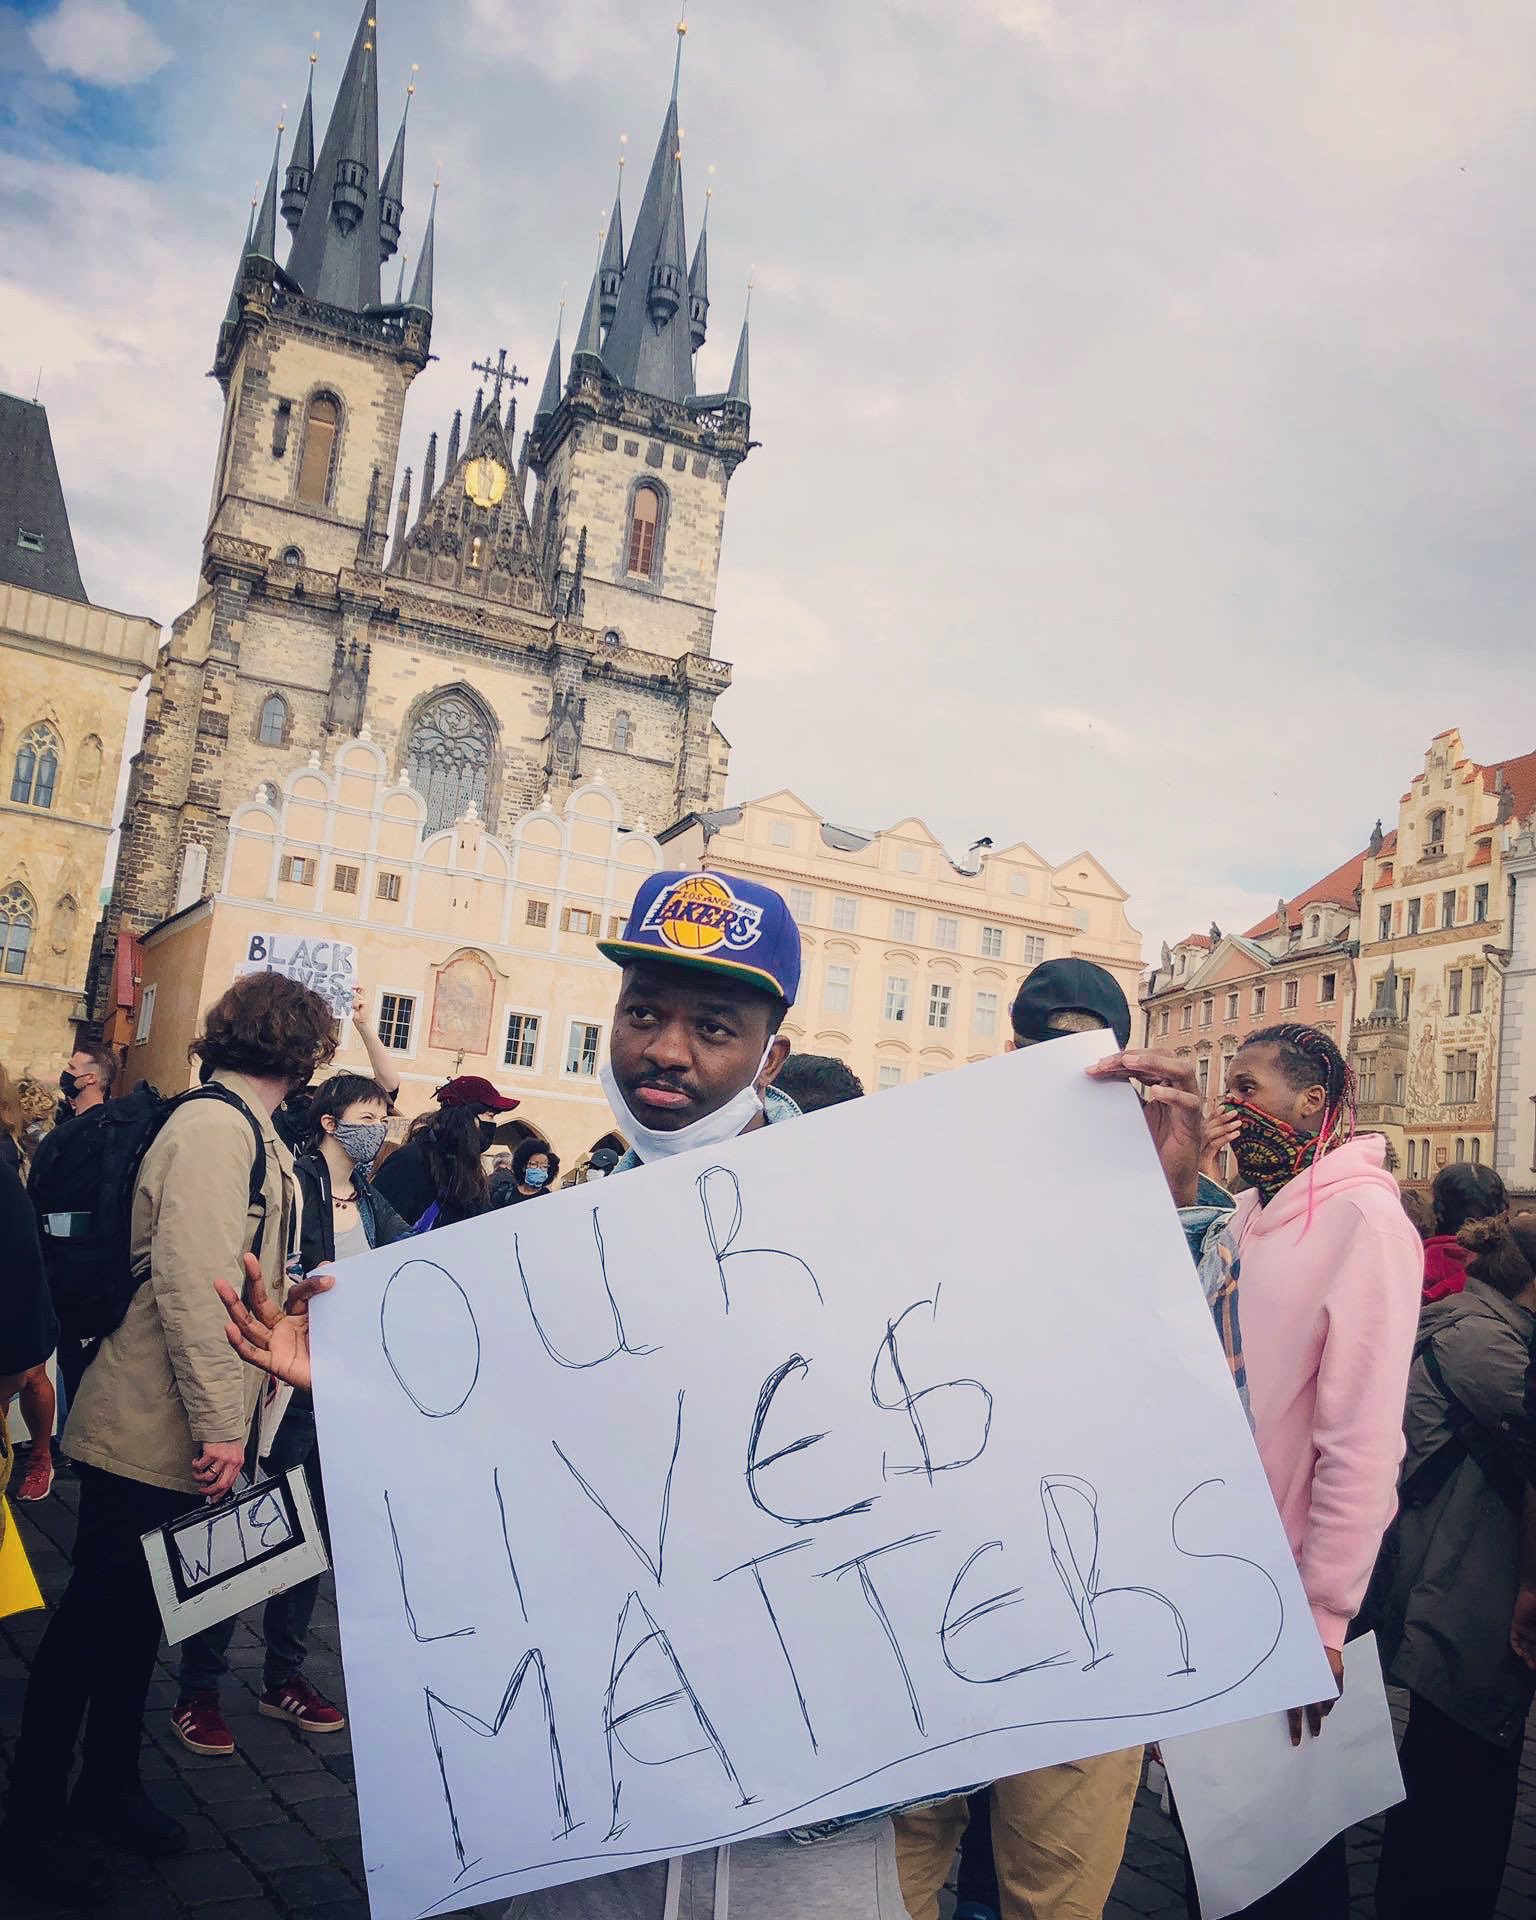 LOS ANGELES
LAKERS
BLACK
LIVES
OUR
LIVES
MATTERS